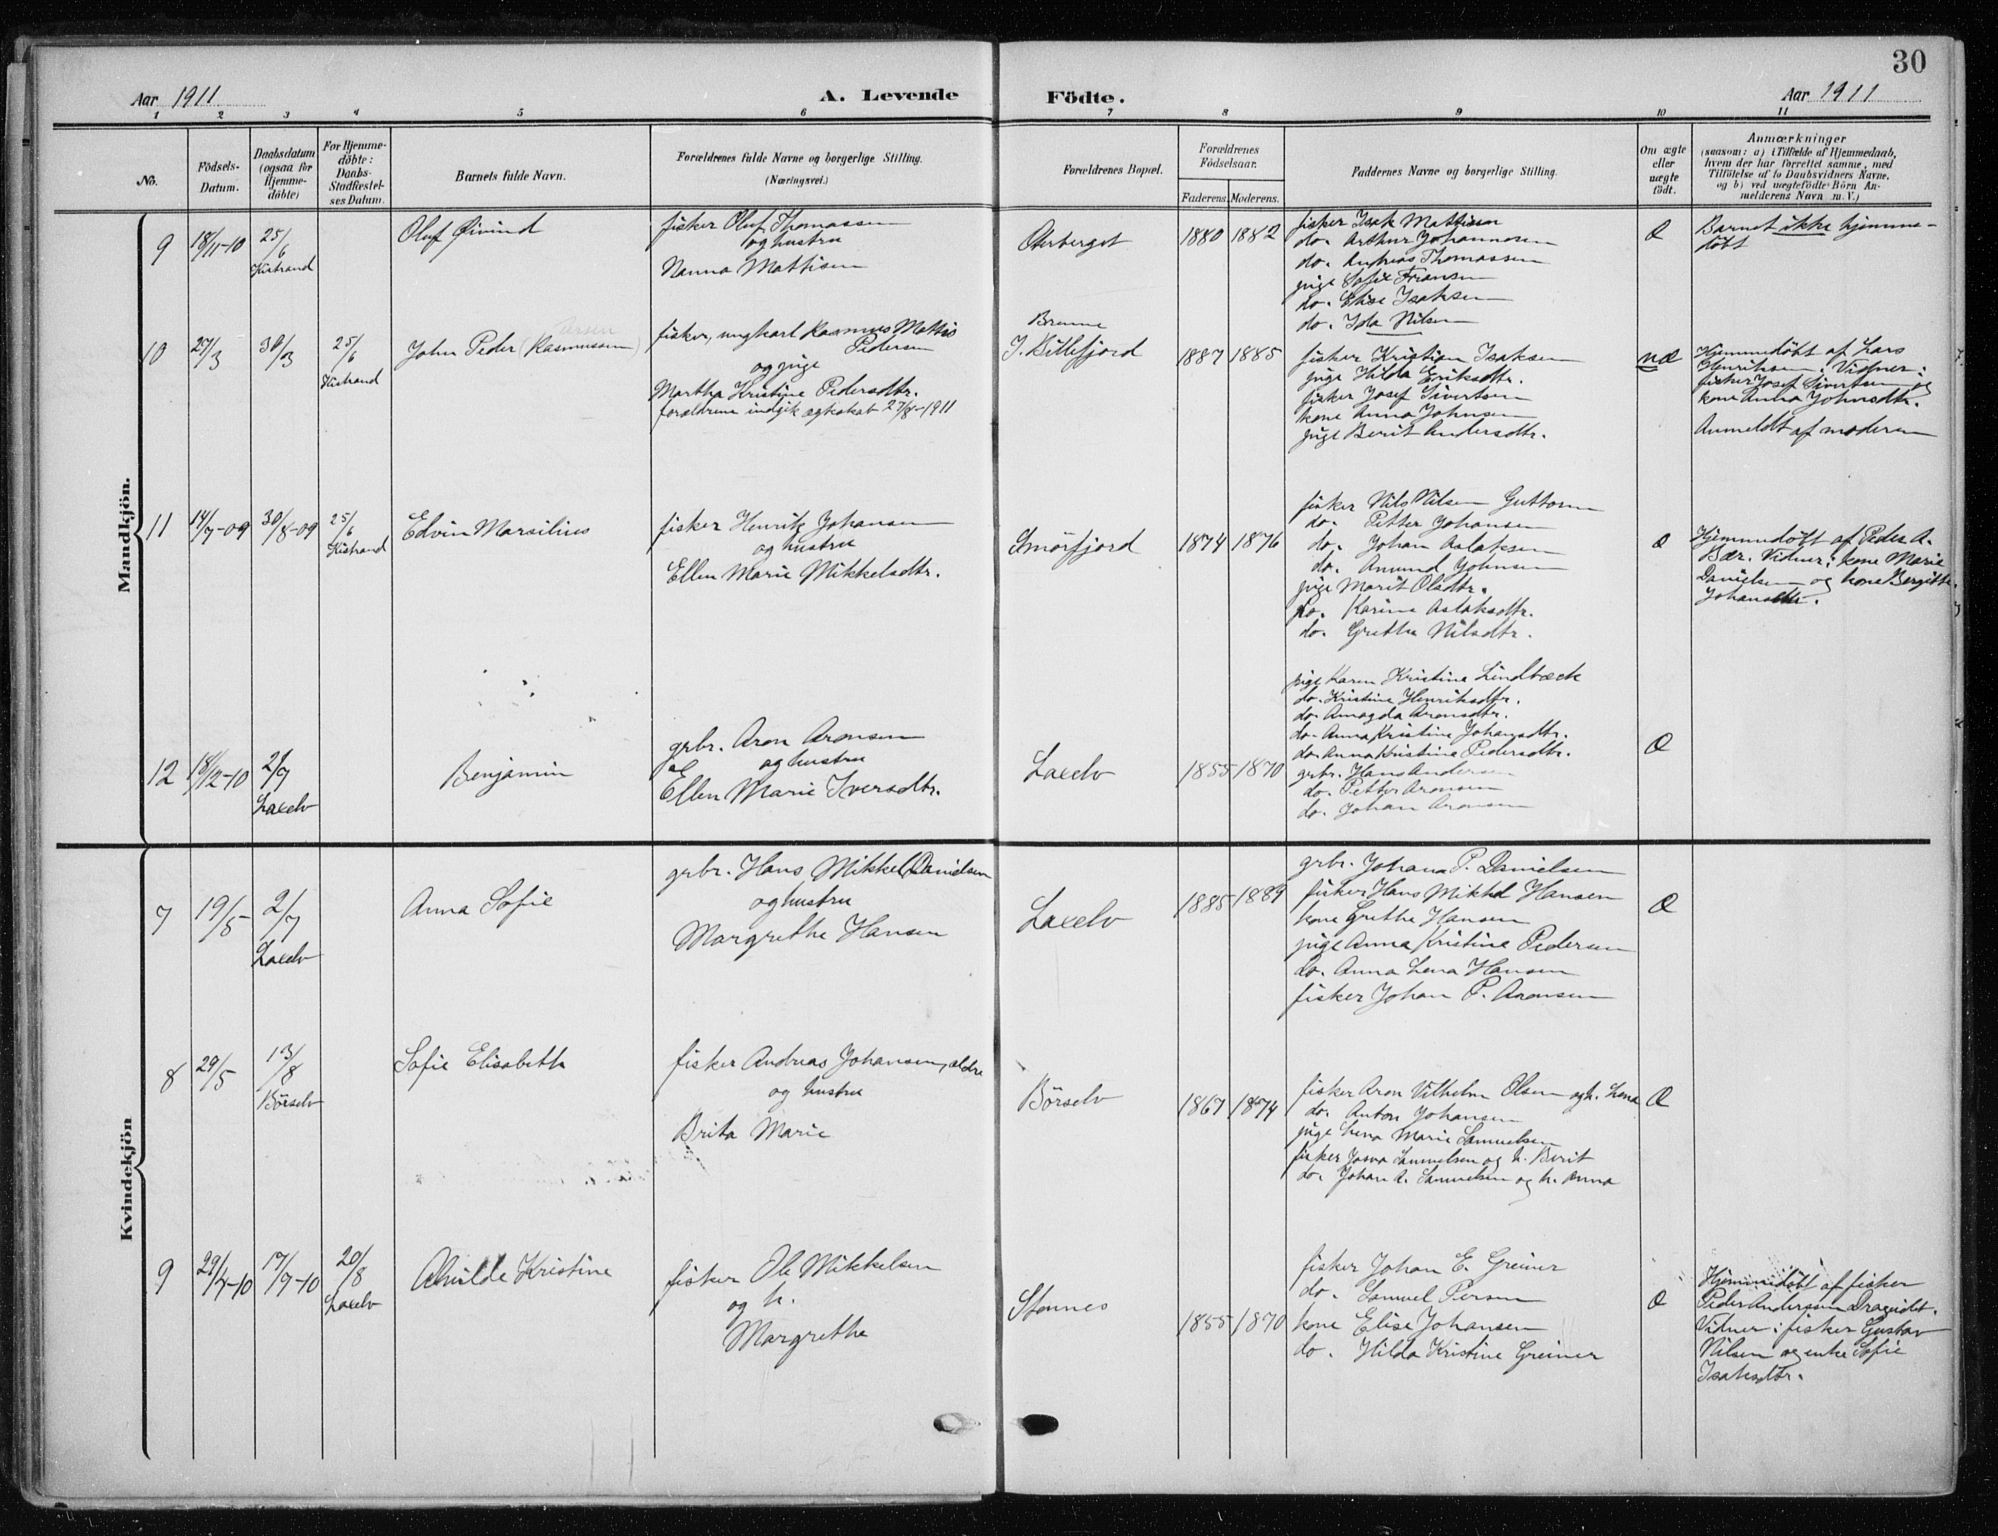 30
Aar 1911
A. Levende
Födte.
Aar 1911
1 2 3 4 5 6 7 8 9 10 11
No.
Födsels-
Datum.
Daabsdatum
(ogsaa for
Hjemme-
döbte)
For Hjemme-
döbte:
Daabs-
Stadfæstel-
ses Datum.
Barnets fulde Navn.
Forældrenes fulde Navne og borgerlige Stilling.
(Næringsvei.)
Forældrenes Bopæl.
Forældrenes
Födselsaar.
Faderens. Moderens.
Faddernes Navne og borgerlige Stilling.
Om ægte
eller
uægte
födt.
Anmærkninger
(saasom: a) i Tilfælde af Hjemmedaab,
hvem der har forrettet samme, med
Tilföielse af to Daabsvidners Navne.
og b) ved uægtefödte Börn An-
melderens Navn m. V.)
Mandkjön.
9
18/11-10
25/6
Kistrand
Oluf Øivind
fisker Oluf Thomassen
og hustru
Nanna Mattisen
Oterberget
1880 1882
fisker Isak Mattisen
do. Arthur Johannesen
do. Andreas Thomassen
pige Sofie Fransen
do. Elise Isaksen
do. Ida Nilsen
Æ
Barnet ikke hjemme-
döbt
10
27/3
30/3
25/6
Kistrand
John Peder (Rasmussen)
fisker, ungkarl Rasmus Mattis
Pedersen
og pige
Martha Kristine Pedersdtr.
forældrene indgik ægteskab 27/8-1911
Brenne
I. Billefjord
1887 1885
fisker Kristian Isaksen
pige Hilda Eriksdtr.
fisker Josef Sivertsen
kone Anna Johnsen
pige Berit Andersdtr.
uæ
Hjemmedöbt af Lars
Henriksen. Vidner:
fisker Josef Sivertsen og
kone Anna Johnsdtr.
Anmeldt af moderen
11
14/7-09
30/8-09
25/6
Kistrand
Edvin Marsilius
fisker Henrik Johansen
og hustru
Ellen Marie Mikkelsdtr.
Smörfjord
1874 1876
fisker Nils Nilsen Guttorm
do. Petter Johansen
do. Johan Aslaksen
do. Amund Johnsen
pige Marit Olsdtr.
do. Karine Aslaksdtr.
do. Grethe Nilsdtr.
æ
Hjemmedöbt af Peder A.
Bær. Vidner: kone Marie
Danielsen og kone Bergitte
Johansdtr.
12
18/12-10
2/7
Laxelv
Benjamin
grbr. Aron Aronsen
og hustru
Ellen Marie Iversdtr.
Laxelv
1855 1870
pige Karen Kristine Lindbæck
do. Kristine Henriksdtr.
do. Amagda Aronsdtr.
do. Anna Kristine Johansdtr.
do. Anna Kristine Pedersdtr.
grbr. Hans Andersen
do. Petter Aronsen
do. Johan Aronsen
Æ
Kvindekjön
7
19/5
2/7
Laxelv
Anna Sofie
grbr. Hans Mikkel Danielsen
og hustru
Margrethe Hansen
Laxelv
1885 1889
grbr. Johan P. Danielsen
fisker Hans Mikkel Hansen
kone Grethe Hansen
pige Anna Kristine Pedersen
do. Anna Lena Hansen
fisker Johan P. Aronsen
Æ
8
29/5
13/8
Börselv
Sofie Elisabeth
fisker Andreas Johansen, ældre
og hustru
Brita Marie
Börselv
1867 1874
fisker Aron Vilhelm Olsen og h. Lena
do. Anton Johansen
pige Lena Marie Samuelsen
fisker Josva Samuelsen og h. Berit
do. Johan A. Samuelsen og h. Anna
Æ
9
29/4-10
17/9-10
20/8
Laxelv
Alvilde Kristine
fisker Ole Mikkelsen
og h.
Margrethe
Stennes
1855 1870
fisker Johan E. Greiner
do. Samuel Persen
kone Elise Johansen
do. Hilda Kristine Greiner
Æ
Hjemmedöbt af fisker
Peder Andersen
Vidner: fisker Gustav
Nilsen og enke Sofie
Isaksdtr.